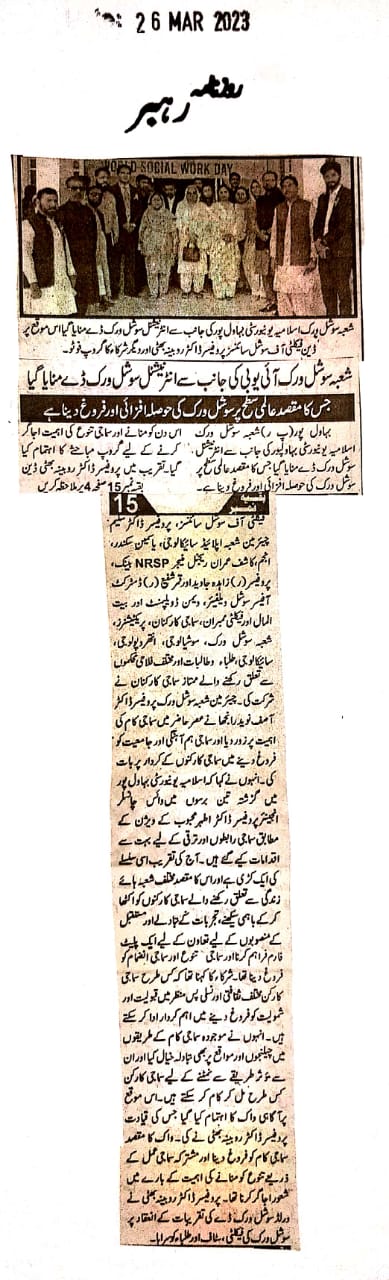 26 MAR 2023
روزنامہ رہبر
WORLD SOCIAL WORK DAY
شعبہ سوشل ورک اسلامیہ یونیورسٹی بہاول پور کی جانب سے انٹرنیشنل سوشل ورک ڈے منایا گیا اس موقع پر
ڈین فیکلٹی آف سوشل سائنسز پروفیسر ڈاکٹر روبینہ بھٹی و دیگر شرکاء کا گروپ فوٹو۔
شعبہ سوشل ورک آئی یو بی کی جانب سے انٹرنیشنل سوشل ورک ڈے منایا گیا
جس کا مقصد عالمی سطح پر سوشل ورک کی حوصلہ افزائی اور فروغ دینا ہے
بہاول پور (پ ر) شعبہ سوشل ورک
اسلامیہ یونیورسٹی بہاولپور کی جانب سے انٹرنیشنل
سوشل ورک ڈے منایا گیا جس کا مقصد عالمی سطح پر
سوشل ورک کی حوصلہ افزائی اور فروغ دینا ہے۔
اس دن کو منانے اور سماجی تنوع کی اہمیت اجاگر
کرنے کے لیے گروپ مباحثے کا اہتمام کیا
گیا۔ تقریب میں پروفیسر ڈاکٹر روبینہ بھٹی ڈین
بقیہ نمبر 15 صفحہ 4 پر ملاحظہ کریں
بقیہ نمبر 15
فیکلٹی آف سوشل سائنسز، پروفیسر ڈاکٹر سلیم
چیئرمین شعبہ اپلائیڈ سائیکالوجی، یاسمین سکندر،
انجم، کاشف عمران ریجنل منیجر NRSP بینک،
پروفیسر (ر) زاہدہ جاوید اور قمر شفیع (ر) ڈسٹرکٹ
آفیسر سوشل ویلفیئر، ویمن ڈویلپمنٹ اور بیت
المال اور فیکلٹی ممبران، سماجی کارکنان، پریکٹیشنرز،
شعبہ سوشل ورک، سوشیالوجی، انتھروپولوجی،
سائیکالوجی، طلباء و طالبات اور مختلف فلاحی محکموں
سے تعلق رکھنے والے ممتاز سماجی کارکنان نے
شرکت کی۔ چیئرمین شعبہ سوشل ورک پروفیسر ڈاکٹر
آصف نوید رانجھا نے عصر حاضر میں سماجی کام کی
اہمیت پر زور دیا اور سماجی ہم آہنگی اور جامعیت کو
فروغ دینے میں سماجی کارکنوں کے کردار پر بات
کی۔ انہوں نے کہا کہ اسلامیہ یونیورسٹی بہاول پور
میں گزشتہ تین برسوں میں وائس چانسلر
انجینئر پروفیسر ڈاکٹر اطہر محبوب کے ویژن کے
مطابق سماجی رابطوں اور ترقی کے لیے بہت سے
اقدامات کیے گئے ہیں۔ آج کی تقریب اسی سلسلے
کی ایک کڑی ہے اور اس کا مقصد مختلف شعبہ ہائے
زندگی سے تعلق رکھنے والے سماجی کارکنوں کو اکٹھا
کر کے باہمی سیکھنے، تجربات کے تبادلے اور مستقبل
کے منصوبوں کے لیے تعاون کے لیے ایک پلیٹ
فارم فراہم کرنا اور سماجی تنوع اور سماجی انضمام کو
فروغ دینا تھا۔ شرکاء کا کہنا تھا کہ کس طرح سماجی
کارکن مختلف ثقافتی اور نسلی پس منظر میں قبولیت اور
شمولیت کو فروغ دینے میں اہم کردار ادا کر سکتے
ہیں۔ انہوں نے موجودہ سماجی کام کے طریقوں
میں چیلنجوں اور مواقع پر بھی تبادلہ خیال کیا اور ان
سے مؤثر طریقے سے نمٹنے کے لیے سماجی کارکن
کس طرح مل کر کام کر سکتے ہیں۔ اس موقع
پر آگاہی واک کا اہتمام کیا گیا جس کی قیادت
پروفیسر ڈاکٹر روبینہ بھٹی نے کی۔ واک کا مقصد
سماجی کام کو فروغ دینا اور مشترکہ سماجی عمل کے
ذریعے تنوع کو منانے کی اہمیت کے بارے میں
شعور اجاگر کرنا تھا۔ پروفیسر ڈاکٹر روبینہ بھٹی نے
ورلڈ سوشل ورک ڈے کی تقریبات کے انعقاد پر
سوشل ورک کی فیکلٹی، سٹاف اور طلباء کو سراہا۔